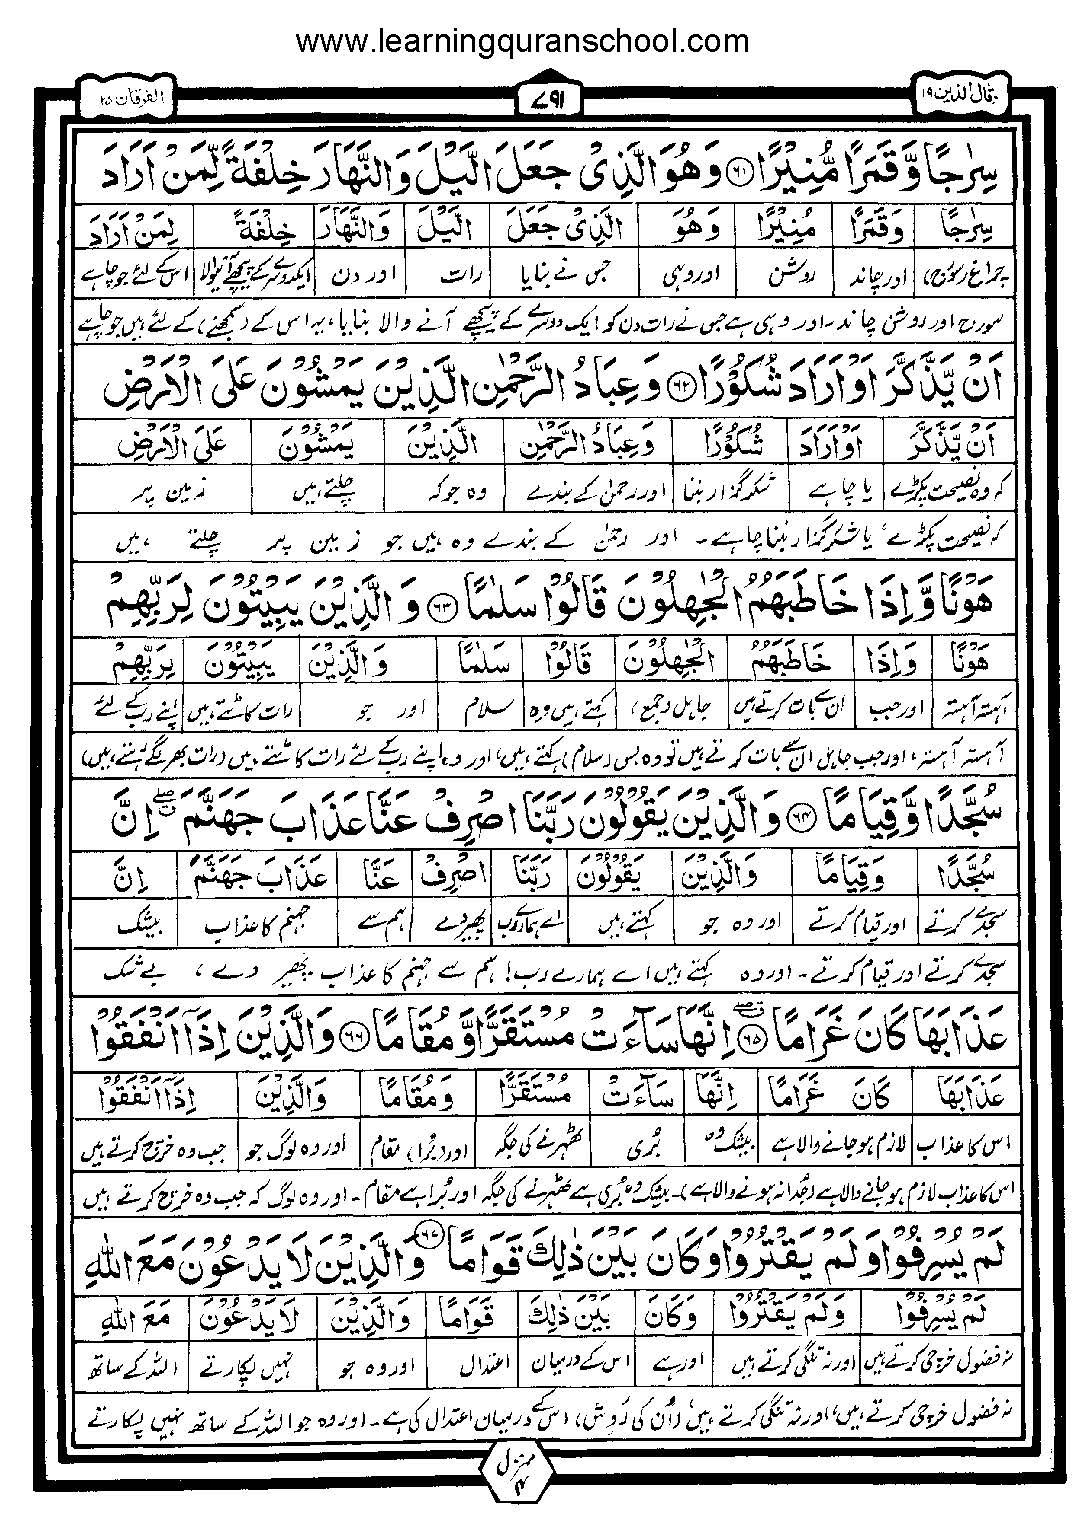 www.learningquranschool.com
وقال الذین ۱۹
۷۹۱
الفرقان ۲۵
سِرٰجًا وَّقَمَرًا مُّنِیْرًا ﴿۶۱﴾ وَهُوَ الَّذِیْ جَعَلَ الَّیْلَ وَالنَّهَارَ خِلْفَةً لِّمَنْ اَرَادَ
سِرٰجًا وَقَمَرًا مُنِیْرًا وَهُوَ الَّذِیْ جَعَلَ الَّیْلَ وَالنَّهَارَ خِلْفَةً لِمَنْ اَرَادَ
چراغ (سورج) اور چاند روشن اور وہی جس نے بنایا رات اور دن ایک دوسرے کے پیچھے آنیوالا اس کے لئے جو چاہے
سورج اور روشن چاند۔ اور وہی ہے جس نے رات دن کو ایک دوسرے کے پیچھے آنے والا بنایا، یہ اس کے (سمجھنے) کے لئے ہیں جو چاہے
اَنْ یَّذَّكَّرَ اَوْ اَرَادَ شُكُوْرًا ﴿۶۲﴾ وَعِبَادُ الرَّحْمٰنِ الَّذِیْنَ یَمْشُوْنَ عَلَی الْاَرْضِ
اَنْ یَّذَّكَّرَ اَوْ اَرَادَ شُكُوْرًا وَعِبَادُ الرَّحْمٰنِ الَّذِیْنَ یَمْشُوْنَ عَلَی الْاَرْضِ
کہ وہ نصیحت پکڑے یا چاہے شکر گزار بننا اور رحمٰن کے بندے وہ جو کہ چلتے ہیں زمین پر
کہ نصیحت پکڑے یا شکر گزار بننا چاہے۔ اور رحمٰن کے بندے وہ ہیں جو زمین پر چلتے ہیں
هَوْنًا وَّاِذَا خَاطَبَهُمُ الْجٰهِلُوْنَ قَالُوْا سَلٰمًا ﴿۶۳﴾ وَالَّذِیْنَ یَبِیْتُوْنَ لِرَبِّهِمْ
هَوْنًا وَاِذَا خَاطَبَهُمُ الْجٰهِلُوْنَ قَالُوْا سَلٰمًا وَالَّذِیْنَ یَبِیْتُوْنَ لِرَبِّهِمْ
آہستہ آہستہ اور جب ان سے بات کرتے ہیں جاہل (جمع) کہتے ہیں وہ سلام اور جو رات کاٹتے ہیں اپنے رب کے لئے
آہستہ آہستہ، اور جب جاہل ان سے بات کرتے ہیں تو وہ بس (سلام) کہتے ہیں، اور وہ اپنے رب کے لئے رات کاٹتے ہیں (رات بھر لگے رہتے ہیں)
سُجَّدًا وَّقِیَامًا ﴿۶۴﴾ وَالَّذِیْنَ یَقُوْلُوْنَ رَبَّنَا اصْرِفْ عَنَّا عَذَابَ جَهَنَّمَ اِنَّ
سُجَّدًا وَقِیَامًا وَالَّذِیْنَ یَقُوْلُوْنَ رَبَّنَا اصْرِفْ عَنَّا عَذَابَ جَهَنَّمَ اِنَّ
سجدے کرتے اور قیام کرتے اور وہ جو کہتے ہیں اے ہمارے رب پھیر دے ہم سے جہنم کا عذاب بیشک
سجدے کرتے اور قیام کرتے۔ اور وہ کہتے ہیں اے ہمارے رب! ہم سے جہنم کا عذاب پھیر دے، بے شک
عَذَابَهَا كَانَ غَرَامًا ﴿۶۵﴾ اِنَّهَا سَآءَتْ مُسْتَقَرًّا وَّمُقَامًا ﴿۶۶﴾ وَالَّذِیْنَ اِذَاۤ اَنْفَقُوْا
عَذَابَهَا كَانَ غَرَامًا اِنَّهَا سَآءَتْ مُسْتَقَرًّا وَمُقَامًا وَالَّذِیْنَ اِذَاۤ اَنْفَقُوْا
اس کا عذاب لازم ہو جانے والا ہے بیشک وہ بُری ٹھہرنے کی جگہ اور (بُرا) مقام اور وہ لوگ جو جب وہ خرچ کرتے ہیں
اس کا عذاب لازم ہو جانے والا ہے (جُدا نہ ہونے والا ہے)۔ بیشک وہ بُری ہے ٹھہرنے کی جگہ اور بُرا ہے مقام۔ اور وہ لوگ کہ جب وہ خرچ کرتے ہیں
لَمْ یُسْرِفُوْا وَلَمْ یَقْتُرُوْا وَكَانَ بَیْنَ ذٰلِكَ قَوَامًا ﴿۶۷﴾ وَالَّذِیْنَ لَا یَدْعُوْنَ مَعَ اللّٰهِ
لَمْ یُسْرِفُوْا وَلَمْ یَقْتُرُوْا وَكَانَ بَیْنَ ذٰلِكَ قَوَامًا وَالَّذِیْنَ لَا یَدْعُوْنَ مَعَ اللّٰهِ
نہ فضول خرچی کرتے ہیں اور نہ تنگی کرتے ہیں اور ہے اس کے درمیان اعتدال اور وہ جو نہیں پکارتے اللہ کے ساتھ
نہ فضول خرچی کرتے ہیں، اور نہ تنگی کرتے ہیں (اُن کی رَوِش) اس کے درمیان اعتدال کی ہے۔ اور وہ جو اللہ کے ساتھ نہیں پکارتے
منزل ۴